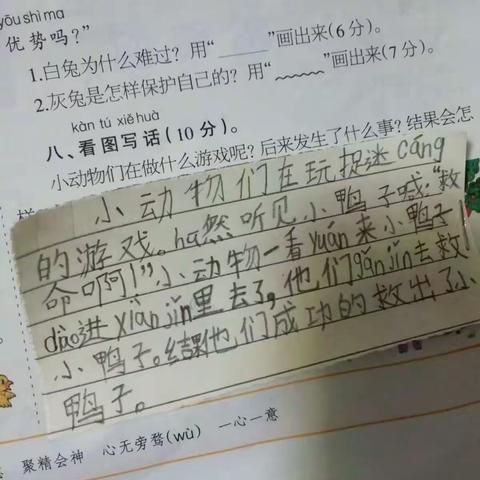 yōu shì ma
优势吗?”
1.白兔为什么难过？用“______”画出来(6分)。
2.灰兔是怎样保护自己的？用“﹏﹏﹏”画出来(7分)。
kàn tú xiě huà
八、看图写话(10分)。
小动物们在做什么游戏呢？后来发生了什么事？结果会怎
样
小动物们在玩捉迷cáng
的游戏。hū然听见小鸭子喊:“救
命啊!”小动物一看yuán来小鸭子
dào进xiàn jǐn里去了,他们gǎn jǐn去救
小鸭子。结果他们成功的救出了小
鸭子。
聚精会神 心无旁骛(wù) 一心一意